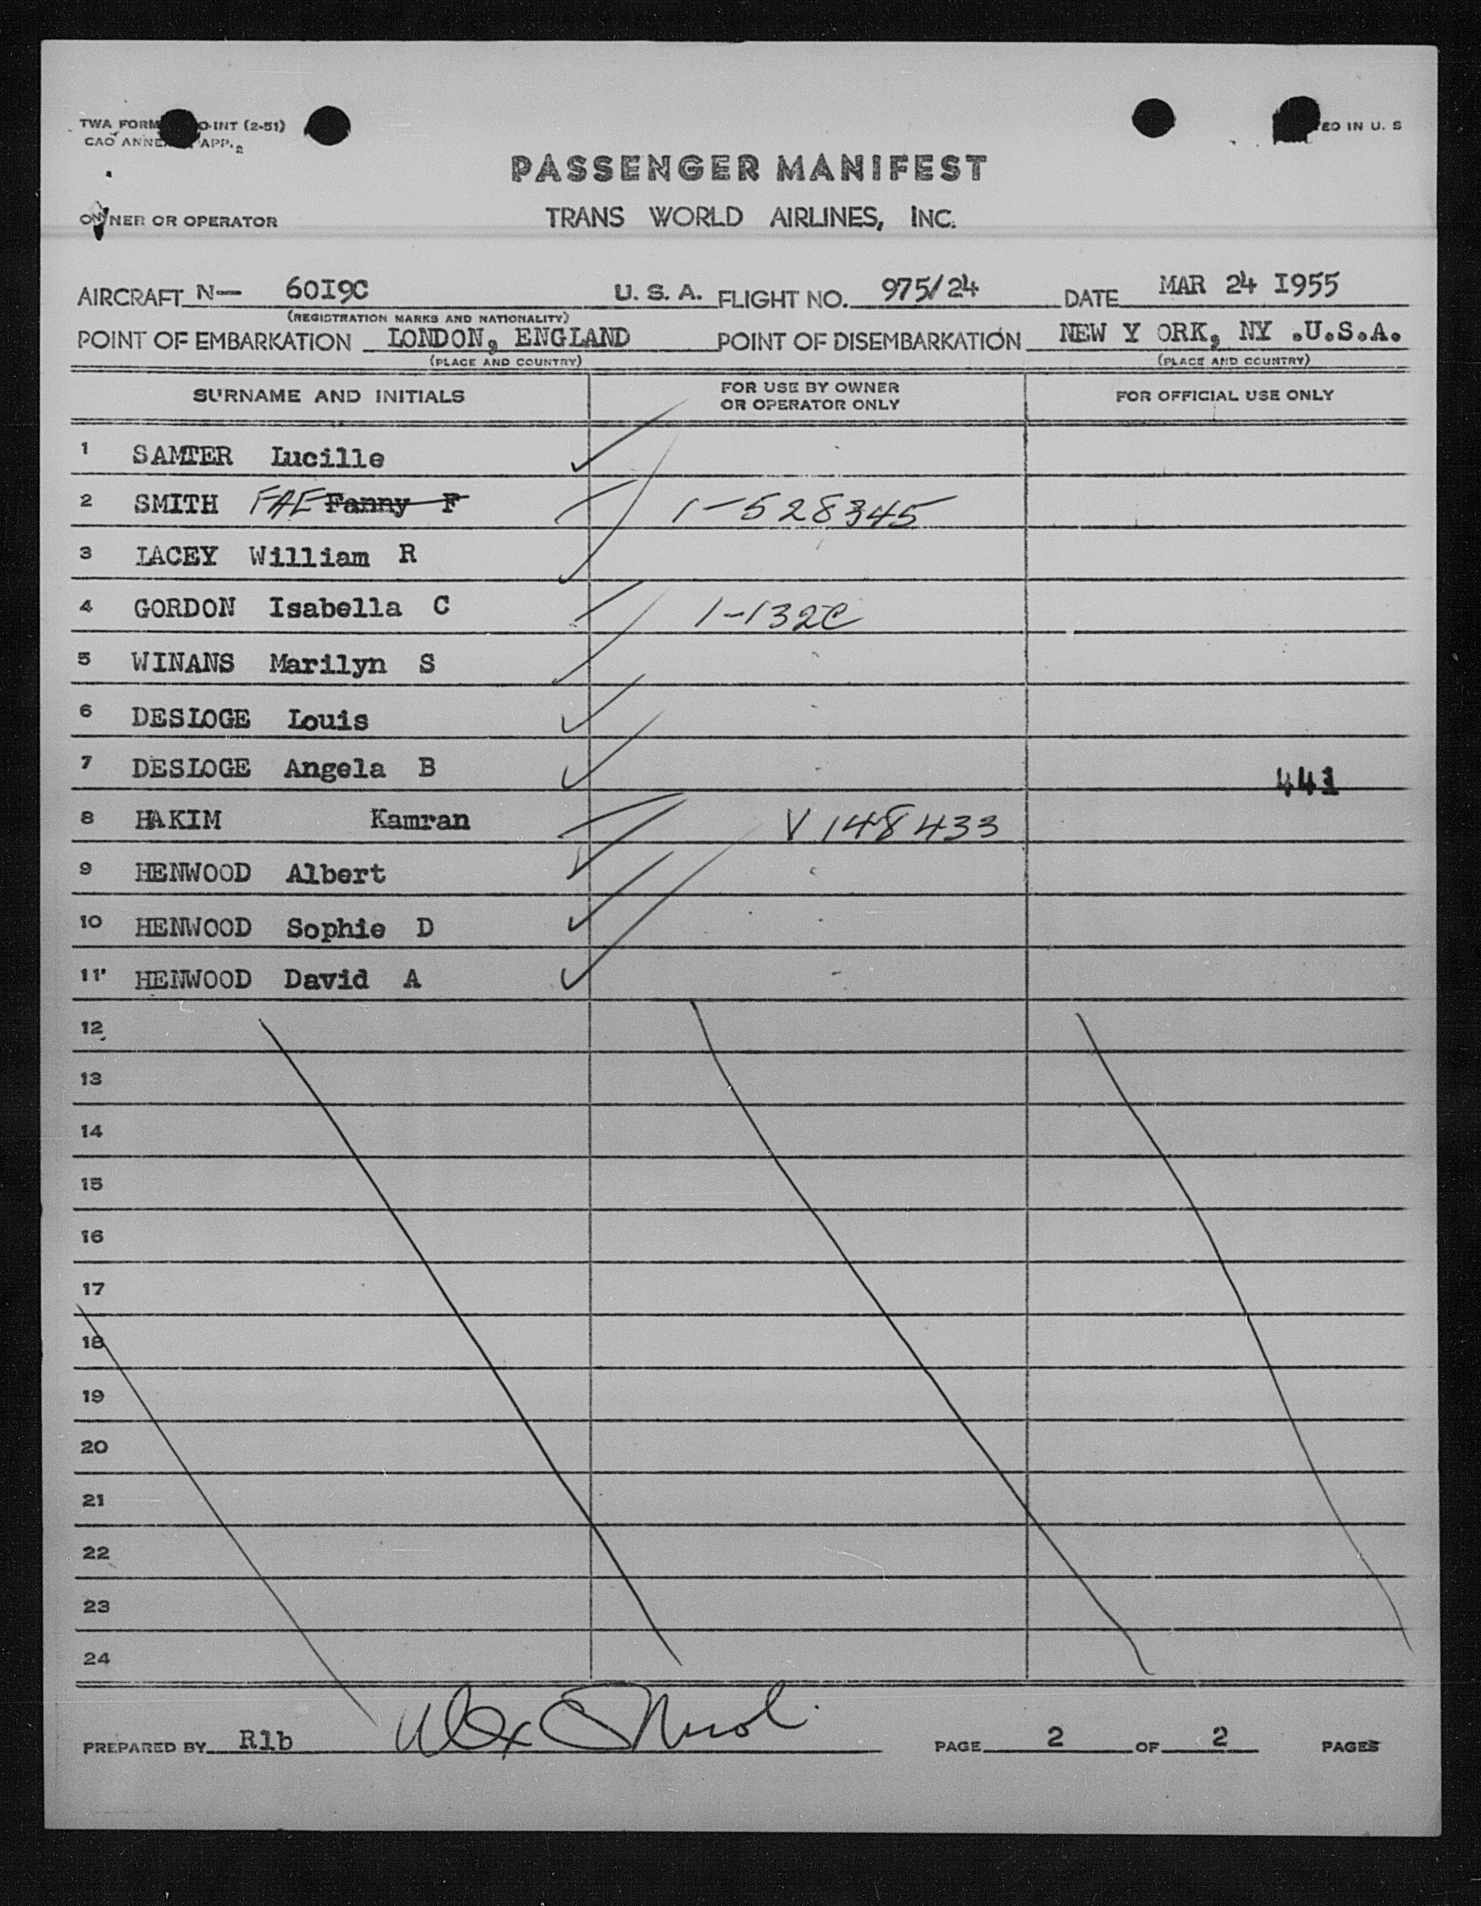 TWA FORM O-INT (2-51)
CAO ANNEX APP. 2
ED IN U. S
PASSENGER MANIFEST
OWNER OR OPERATOR TRANS WORLD AIRLINES, INC.
AIRCRAFT N— 60I9C U. S. A. FLIGHT NO. 975/24 DATE MAR 24 I955
(REGISTRATION MARKS AND NATIONALITY)
POINT OF EMBARKATION LONDON, ENGLAND POINT OF DISEMBARKATION NEW Y ORK, NY .U.S.A.
(PLACE AND COUNTRY) (PLACE AND COUNTRY)
SURNAME AND INITIALS FOR USE BY OWNER OR OPERATOR ONLY FOR OFFICIAL USE ONLY
1 SAMTER Lucille
2 SMITH FAE Fanny F 1-528345
3 LACEY William R
4 GORDON Isabella C 1-132C
5 WINANS Marilyn S
6 DESLOGE Louis
7 DESLOGE Angela B 441
8 HAKIM Kamran V 148433
9 HENWOOD Albert
10 HENWOOD Sophie D
11 HENWOOD David A
12
13
14
15
16
17
18
19
20
21
22
23
24
PREPARED BY Rlb PAGE 2 OF 2 PAGES